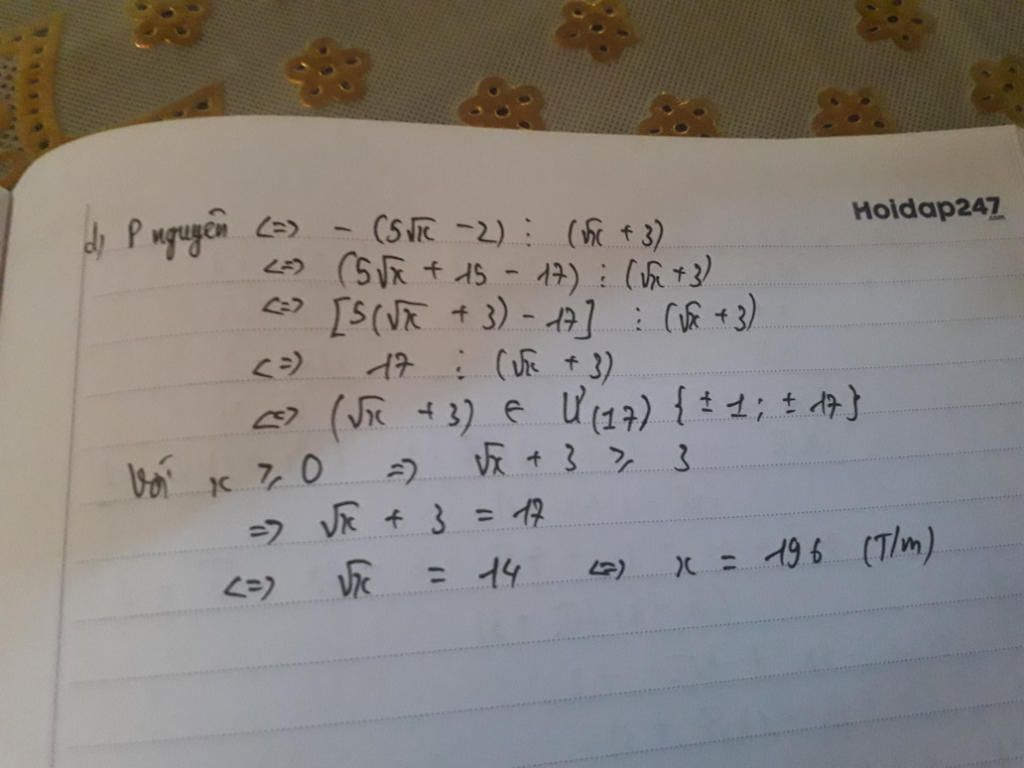 Hoidap247
.com
d, P nguyên <=> - (5√x - 2) ⋮ (√x + 3)
<=> (5√x + 15 - 17) ⋮ (√x + 3)
<=> [5(√x + 3) - 17] ⋮ (√x + 3)
<=> 17 ⋮ (√x + 3)
<=> (√x + 3) ∈ Ư(17) {± 1; ± 17}
Với x ≥ 0 => √x + 3 ≥ 3
=> √x + 3 = 17
<=> √x = 14 <=> x = 196 (T/m)